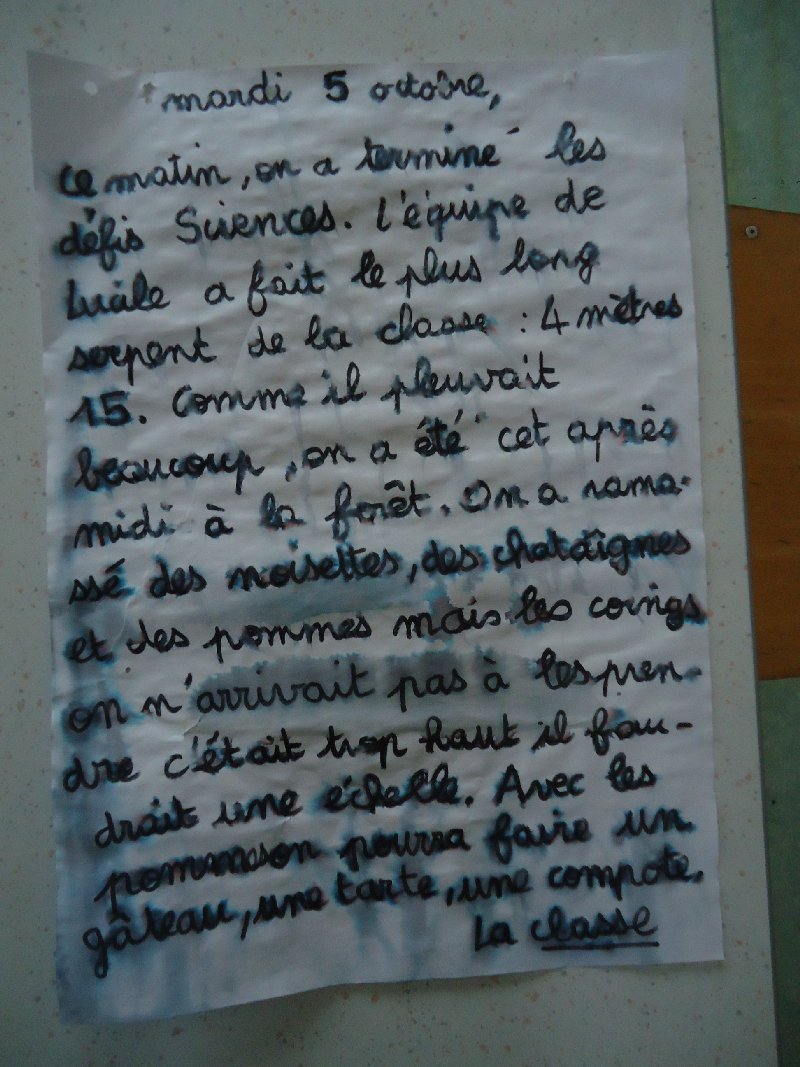 mardi 5 octobre,
Ce matin, on a terminé les
défis Sciences. L'équipe de
a fait le plus long
serpent de la classe : 4 mètres
15. Comme il pleuvait
beaucoup, on a été cet après
midi à la forêt. On a rama-
ssé des noisettes, des chataîgnes
et des pommes mais les coings
on n'arrivait pas à les pren-
dre c'était trop haut il fau-
drait une échelle. Avec les
pommes on pourra faire un
gâteau, une tarte, une compote.
La classe